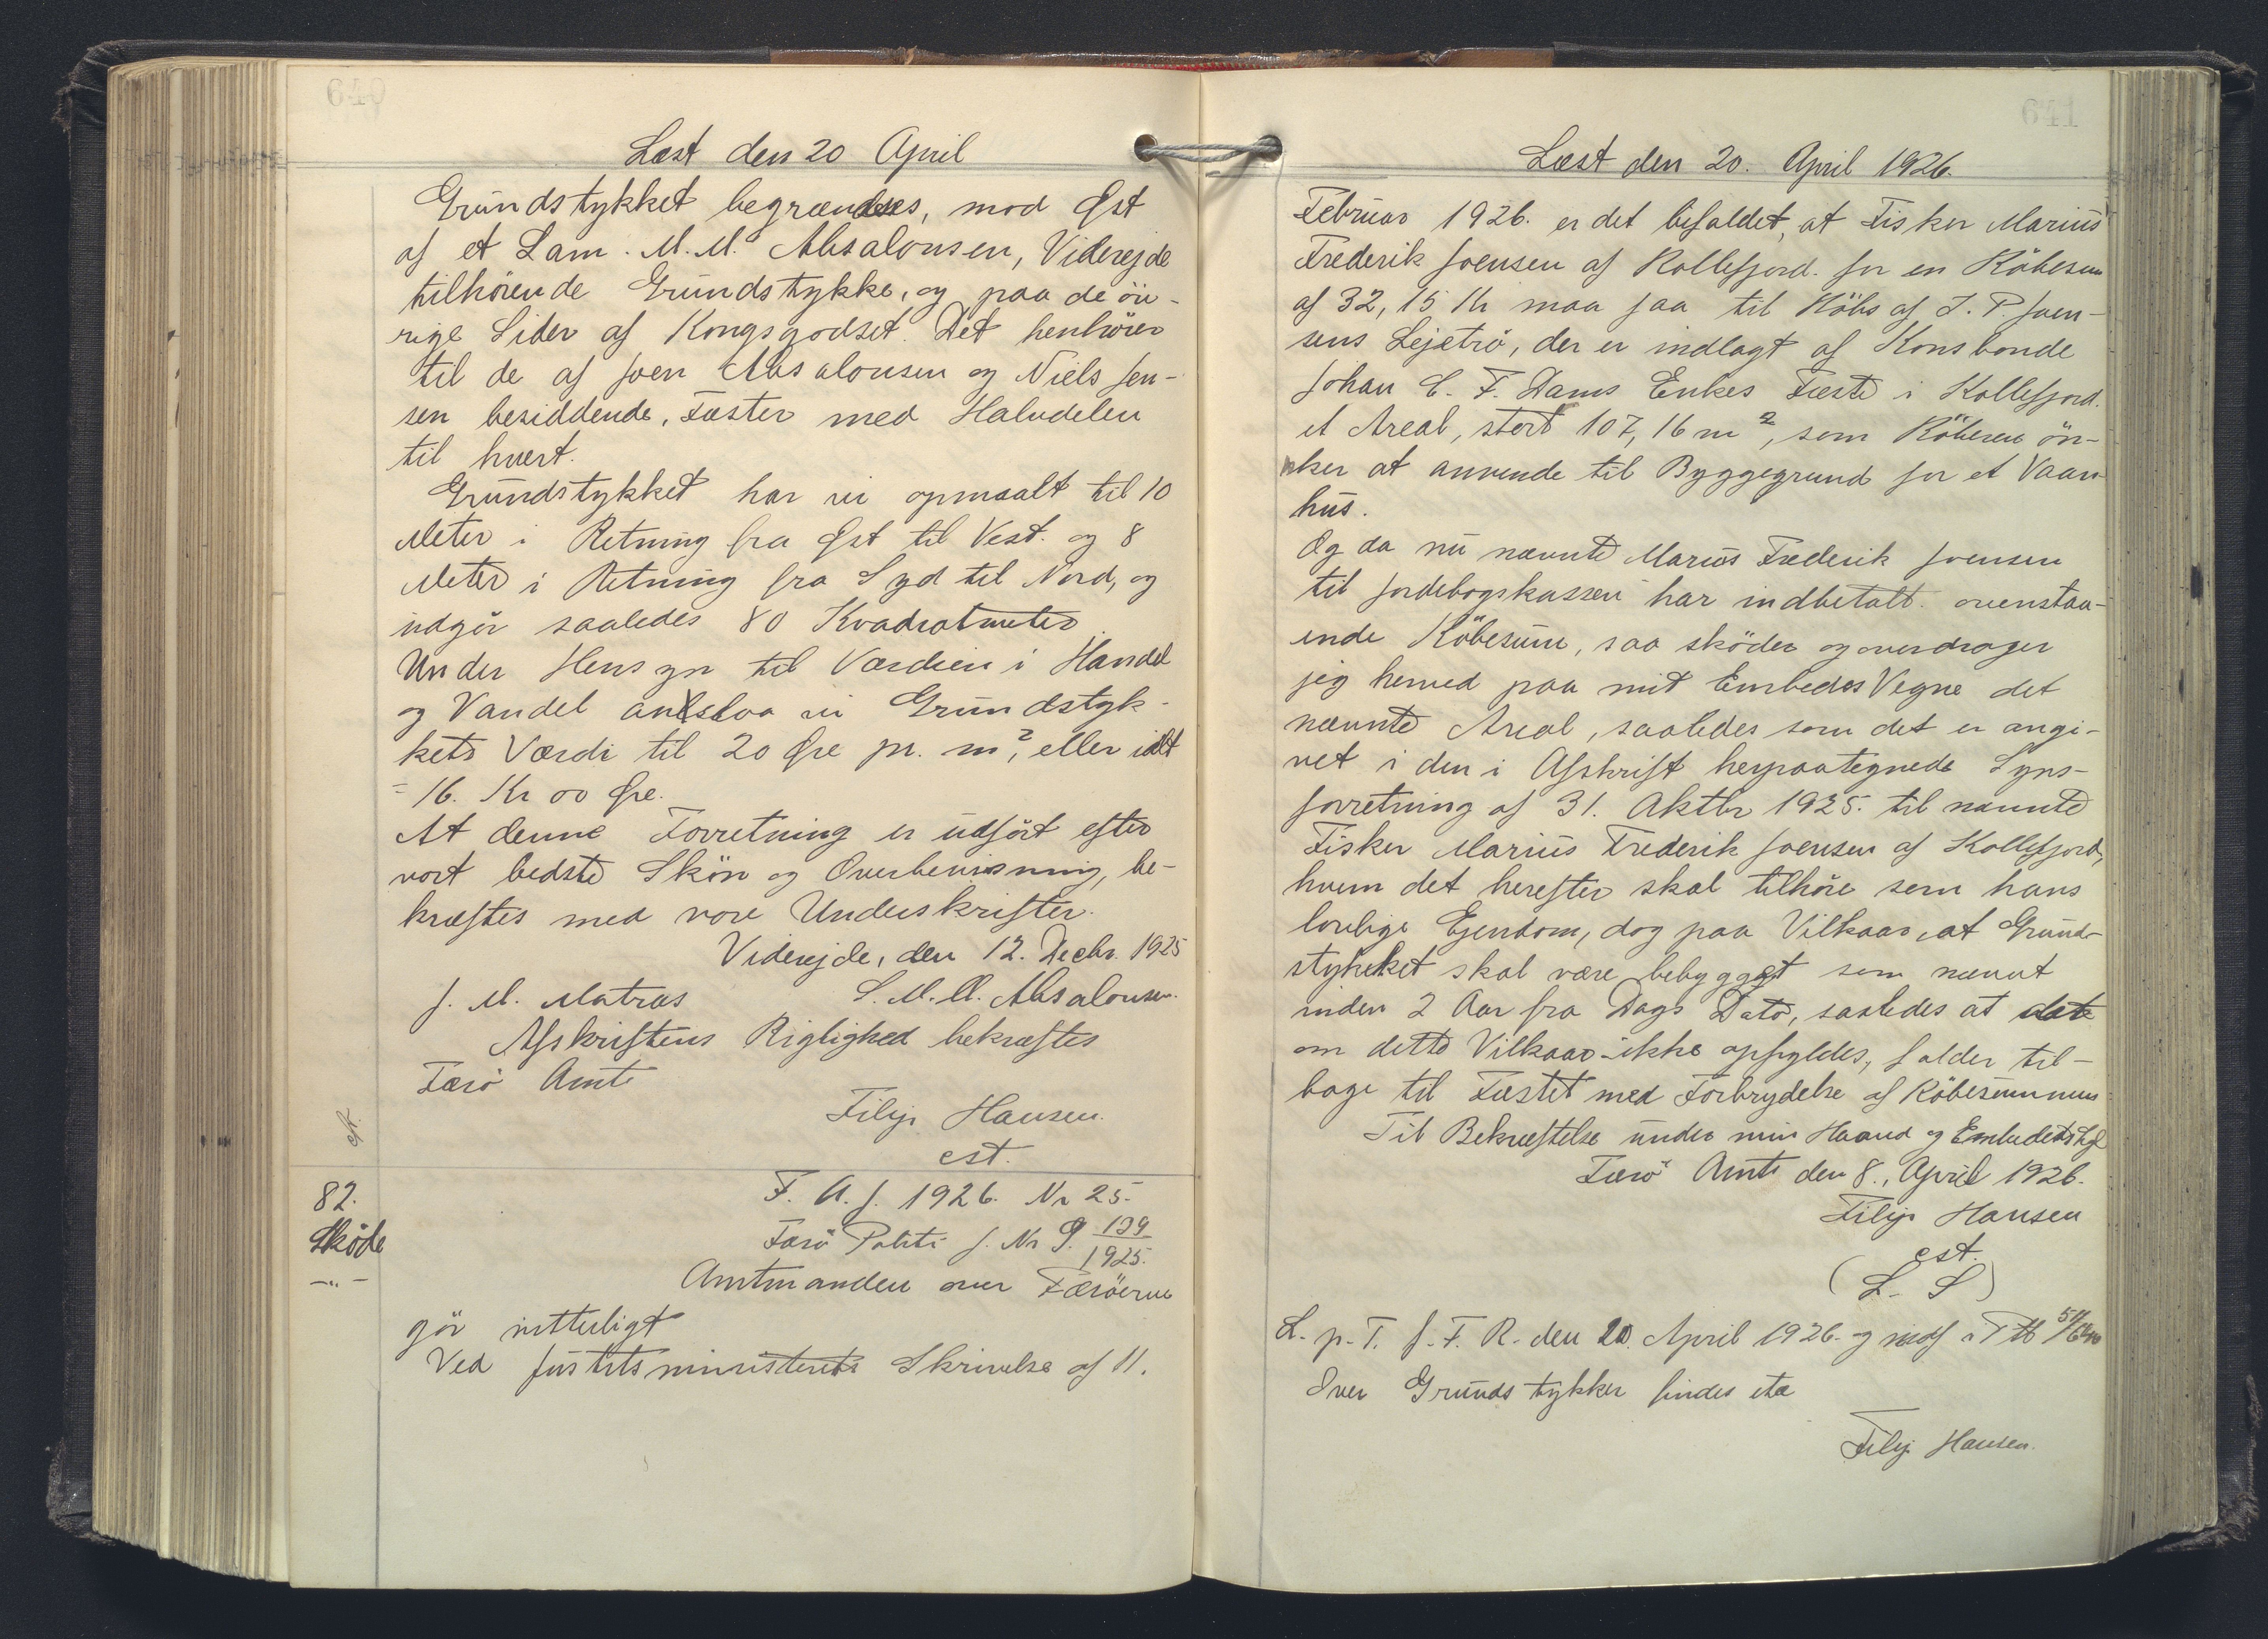 640
Læst den 20 April
Grundstykket begrændses, mod Øst
af et Lam. M. M. Absalonsen, Viderejde
tilhørende Grundstykke, og paa de öv-
rige Sider af Kongsgodset. Det henhører
til de af Joen Absalonsen og Niels Jen-
sen besiddende, Fæster med Halvdelen
til hvert.
Grundstykket har vi opmaalt til 10
Meter i Retning fra Øst til Vest. og 8
Meter i Retning fra Syd til Nord, og
udgör saaledes 80 Kvadratmeter
Under Hensyn til Værdien i Handel
og Vandel anslaa vi Grundstyk-
kets Værdi til 20 Øre pr. m², eller ialt
= 16. Kr 00 Øre.
At denne Forretning er udfört efter
vort bedste Skön og Overbevisning, be-
kræftes med vore Underskrifter.
Viderejde, den 12. Decbr. 1925
J. M. Matras S. M. M. Absalonsen.
Afskriftens Rigtighed bekræftes
Færö Amt
Filip Hansen.
est.
82.
Sköde
—"—
F. A. J. 1926. Nr 25.
Færö Politi J. Nr 9. 139/1925.
Amtmanden over Færöerne
gör vitterligt
Ved Justitsministeriets Skrivelse af 11.
641
Læst den 20. April 1926.
Februar 1926. er det bifaldet, at Fisker Marius
Frederik Joensen af Kollefjord. for en Köbesum
af 32,15 Kr maa faa til Köbs af J. P. Joen-
sens Lejetrö, der er indlagt af Konsbonde
Johan C. F. Dams Enkes Fæste i Kollefjord.
et Areal, stort 107,16 m², som Köberen ön-
sker at anvende til Byggegrund for et Vaan-
hus.
Og da nu nævnte Marius Frederik Joensen
til Jordebogskassen har indbetalt. ovenstaa-
ende Köbesum, saa sköder og overdrager
jeg herved paa mit Embedes Vegne det
nævnte Areal, saaledes som det er angi-
vet i den i Afskrift herpaategnede Syns-
forretning af 31. Oktbr 1925. til nævnte
Fisker Marius Frederik Joensen af Kollefjord,
hvem det herefter skal tilhöre som hans
lovlige Ejendom, dog paa Vilkaar, at Grund-
stykket skal være bebygget som nævnt
inden 2 Aar fra Dags Dato, saaledes at det
om dette Vilkaar ikke opfyldes, falder til-
bage til Fæstet med Forbrydelse af Köbesummen
Til Bekræftelse under min Haand og Embedets Sgl
Færö Amt den 8. April 1926.
Filip Hansen
est.
(L. S)
L. p. T. f. F. R. den 20. April 1926. og indf i
Over Grundstykker findes
Filip Hansen.